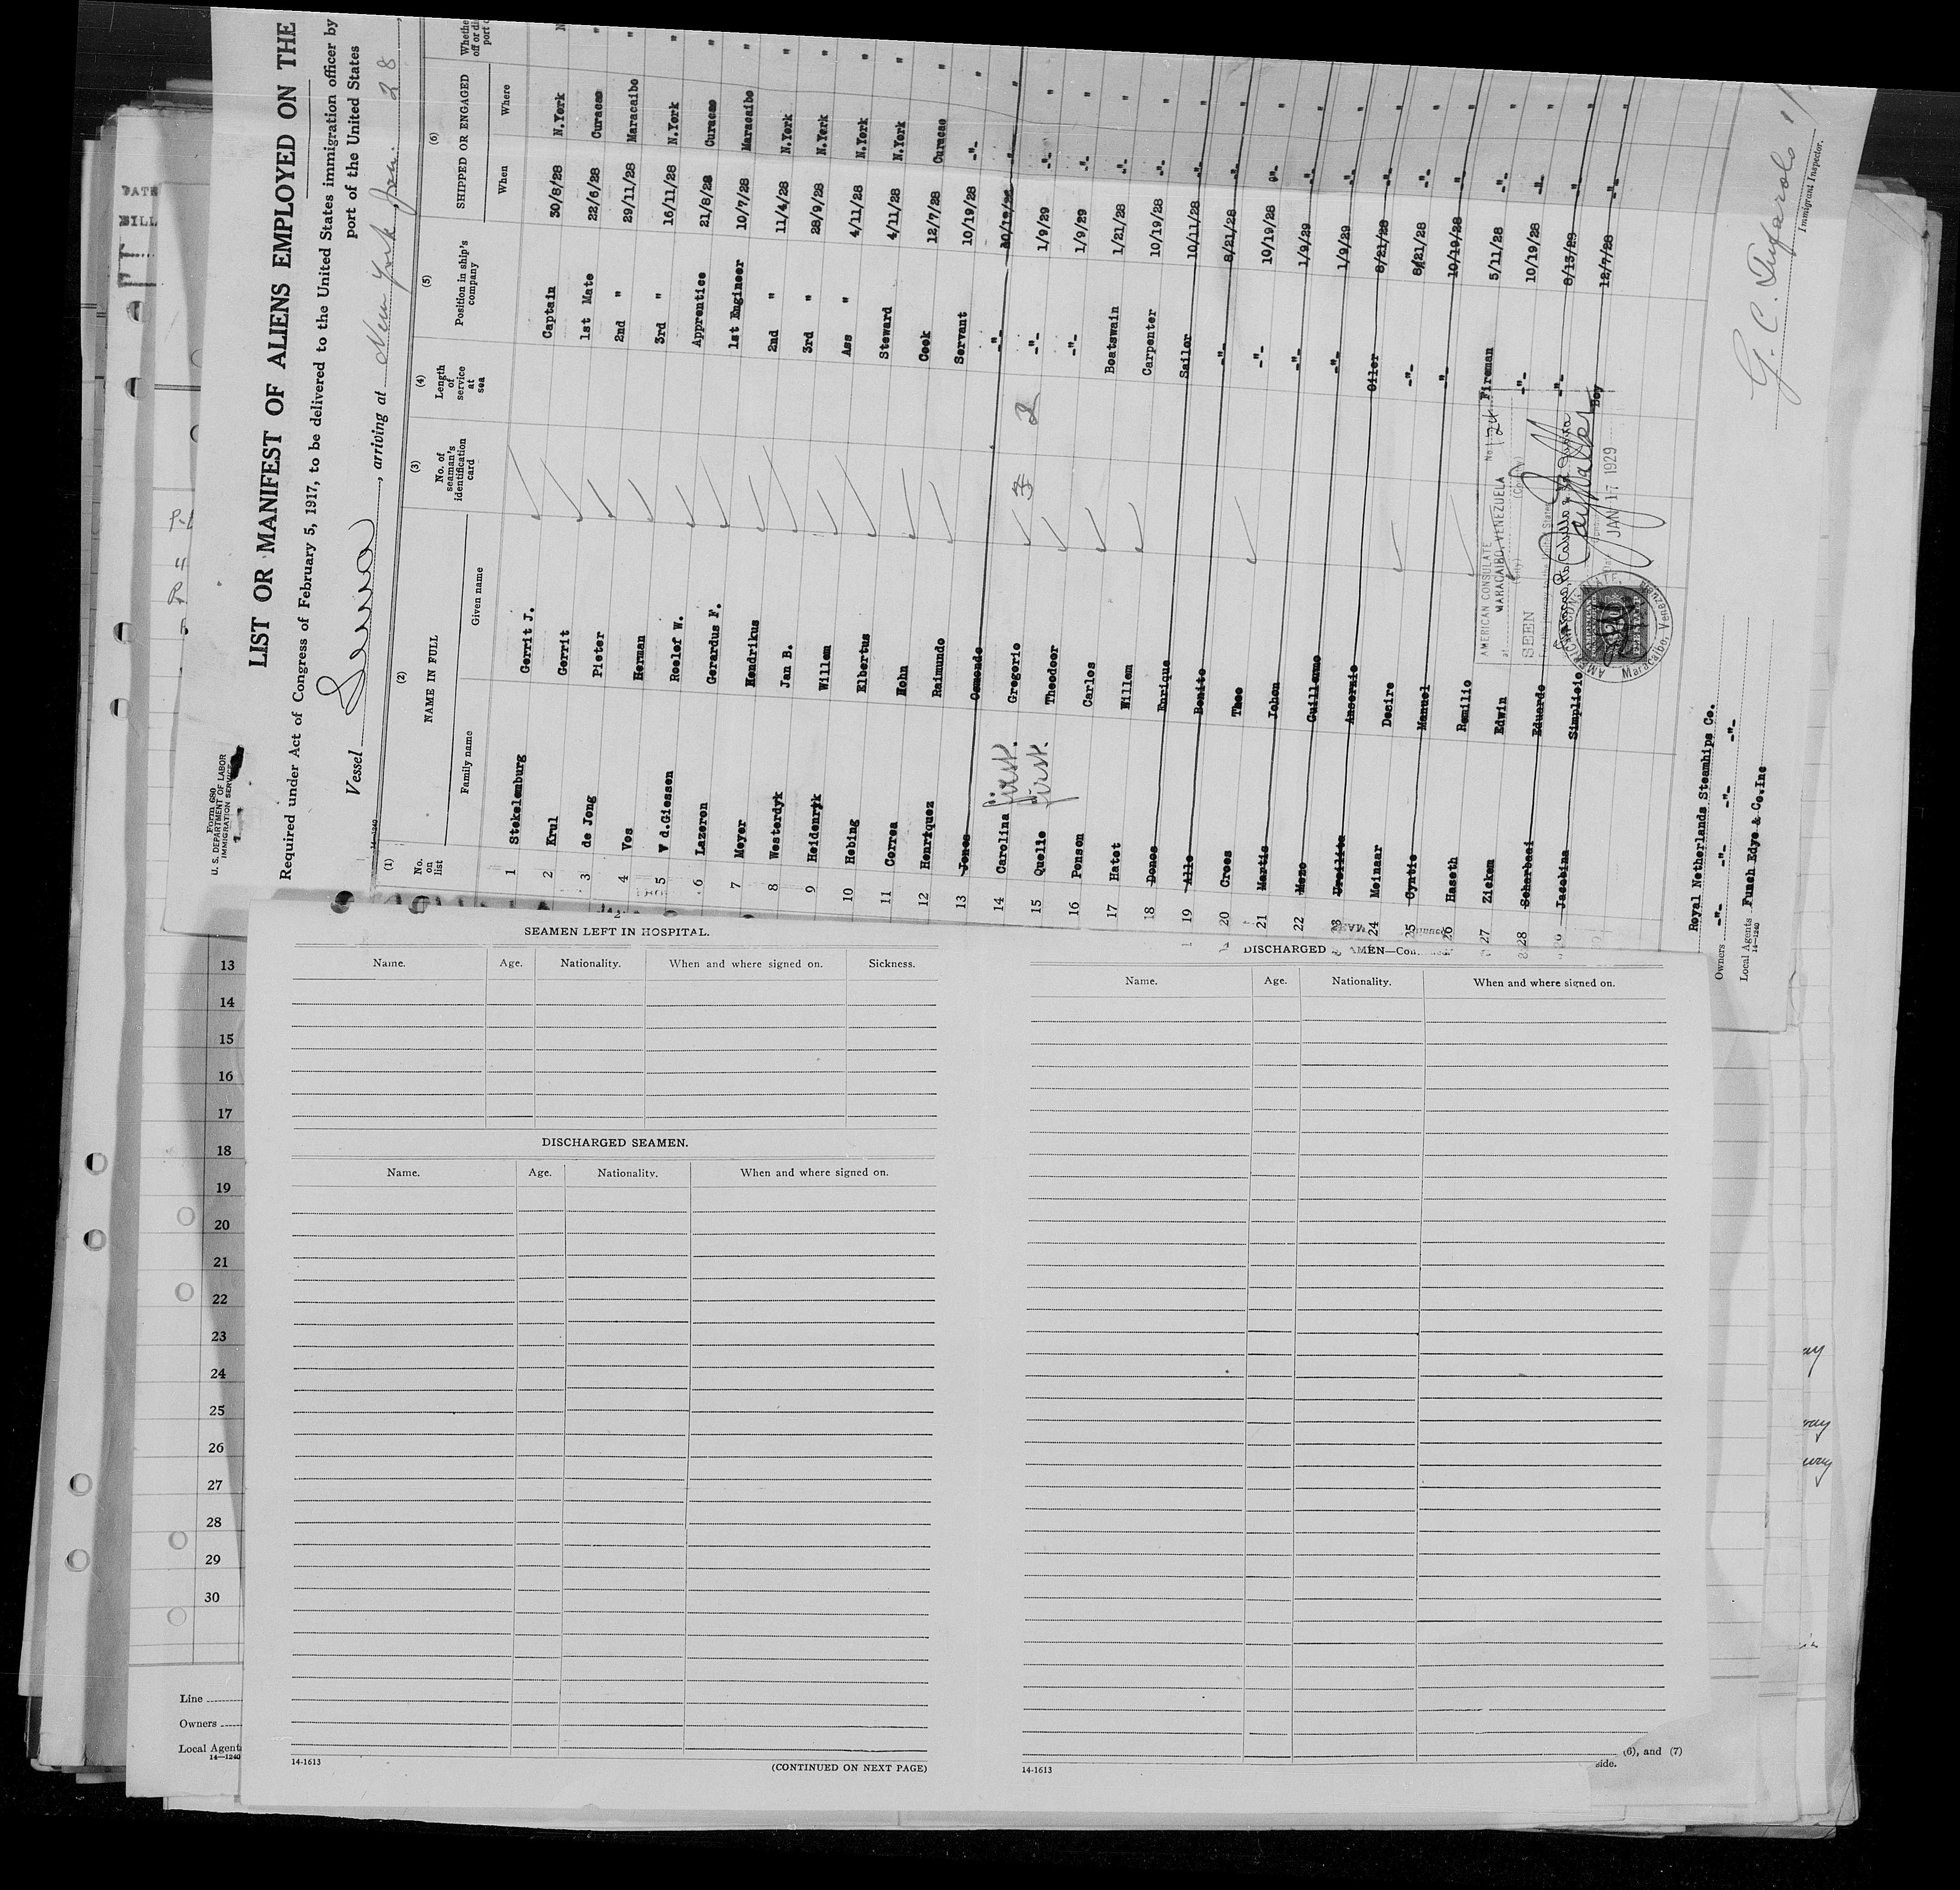 Form 680
U. S. DEPARTMENT OF LABOR
IMMIGRATION SERVICE
LIST OR MANIFEST OF ALIENS EMPLOYED ON THE
Required under Act of Congress of February 5, 1917, to be delivered to the United States immigration officer by
port of the United States
Vessel , arriving at New York Jan. 28,
14—1240
(1) (2) (3) (4) (5) (6)
No. on list NAME IN FULL No. of seaman's identification card Length of service at sea Position in ship's company SHIPPED OR ENGAGED
Family name Given name When Where
1 Stekelenburg Gerrit J. Captain 30/8/28 N.York
2 Krul Gerrit 1st Mate 22/6/28 Curacao "
3 de Jong Pieter 2nd " 29/11/28 Maracaibo "
4 Vos Herman 3rd " 16/11/28 N.York "
5 V d.Giessen Roelof W. Apprentice 21/8/28 Curacao "
6 Lazeron Gerardus F. 1st Engineer 10/7/28 Maracaibo "
7 Meyer Hendrikus 2nd " 11/4/28 N.York "
8 Westerdyk Jan B. 3rd " 28/9/28 N.York "
9 Heidenryk Willem Ass " 4/11/28 N.York "
10 Hebing Elbertus Steward 4/11/28 N.York "
11 Correa Hohn Cook 12/7/28 Curacao "
12 Henriquez Raimundo Servant 10/19/28 -"- "
13 Jones Osmondo -"- 10/19/28 -"- "
14 Carolina first. Gregorio 3 2 -"- 1/9/29 -"- "
15 Quelie first. Theodoor -"- 1/9/29 -"- "
16 Ponson Carlos Boatswain 1/21/28 -"- "
17 Hatot Willem Carpenter 10/19/28 -"- "
18 Donos Enrique Sailor 10/11/28 -"- "
19 Alle Benito -"- 8/21/28 -"- "
20 Croes Theo -"- 10/19/28 -"- "
21 Martis Johon -"- 1/9/29 -"- "
22 Moze Guillermo -"- 1/9/29 -"- "
23 Ursilita Ansernio Oiler 8/21/28 -"- "
24 Meinaar Desire -"- 8/21/28 -"- "
25 Cyntie Manuel -"- 10/19/28 " "
26 Haseth Remilio Fireman 5/11/28 -"- "
27 Ziekem Edwin -"- 10/19/28 -"- "
28 Scharbaai Eduardo -"- 8/13/28 -"- "
29 Jacobina Simplicio Boy 12/7/28 -"- "
AMERICAN CONSULATE No. 124
at MARACAIBO, VENEZUELA
SEEN
JAN 17 1929
Maracaibo, Venezuela
Royal Netherlands Steamships Co.
Owners -"- -"- -"- -"-
Local Agents Funch Edye & Co.Inc
14—1240
Immigrant Inspector.
SEAMEN LEFT IN HOSPITAL.
Name. Age. Nationality. When and where signed on. Sickness.
DISCHARGED SEAMEN.
Name. Age. Nationality. When and where signed on.
14-1613
(CONTINUED ON NEXT PAGE)
Name. Age. Nationality. When and where signed on.
14-1613
(6), and (7)
side.
DATE
BILL
13
14
15
16
17
18
19
20
21
22
23
24
25
26
27
28
29
30
Line
Owners
Local Agent
14—1240